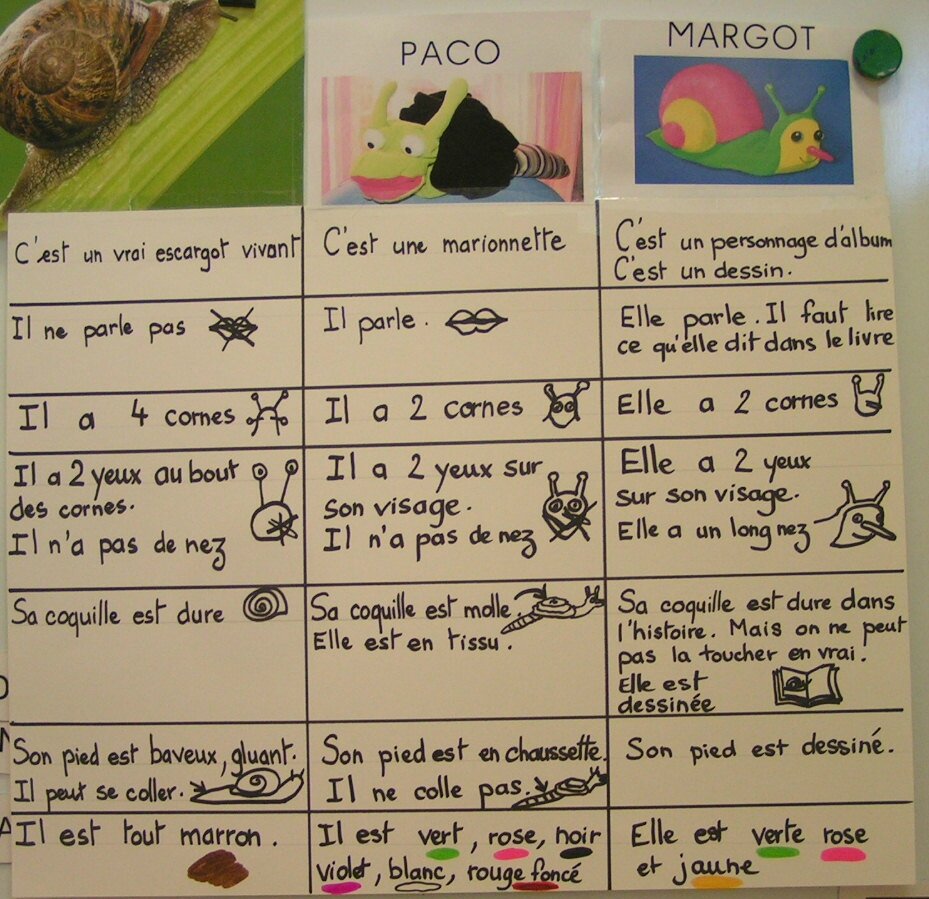 PACO
MARGOT
C'est un vrai escargot vivant
C'est une marionnette
C'est un personnage d'album
C'est un dessin.
Il ne parle pas
Il parle.
Elle parle. Il faut lire
ce qu'elle dit dans le livre
Il a 4 cornes
Il a 2 cornes
Elle a 2 cornes
Il a 2 yeux au bout
des cornes.
Il n'a pas de nez
Il a 2 yeux sur
son visage.
Il n'a pas de nez
Elle a 2 yeux
sur son visage.
Elle a un long nez
Sa coquille est dure
Sa coquille est molle.
Elle est en tissu.
Sa coquille est dure dans
l'histoire. Mais on ne peut
pas la toucher en vrai.
Elle est
dessinée
Son pied est baveux, gluant.
Il peut se coller.
Son pied est en chaussette.
Il ne colle pas.
Son pied est dessiné.
Il est tout marron.
Il est vert, rose, noir
violet, blanc, rouge foncé
Elle est verte rose
et jaune